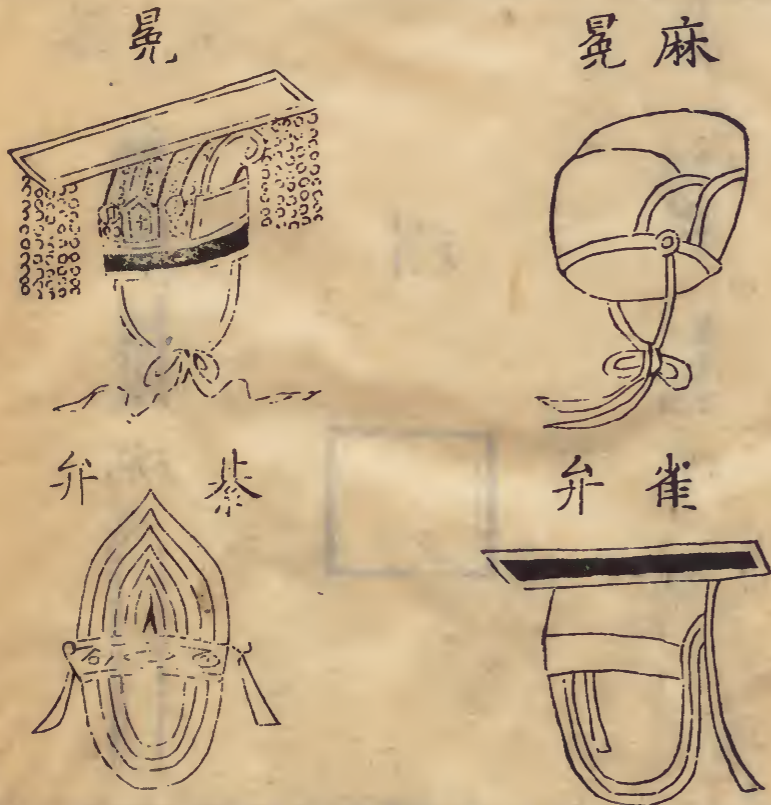 麻冕
冕
雀弁
綦弁